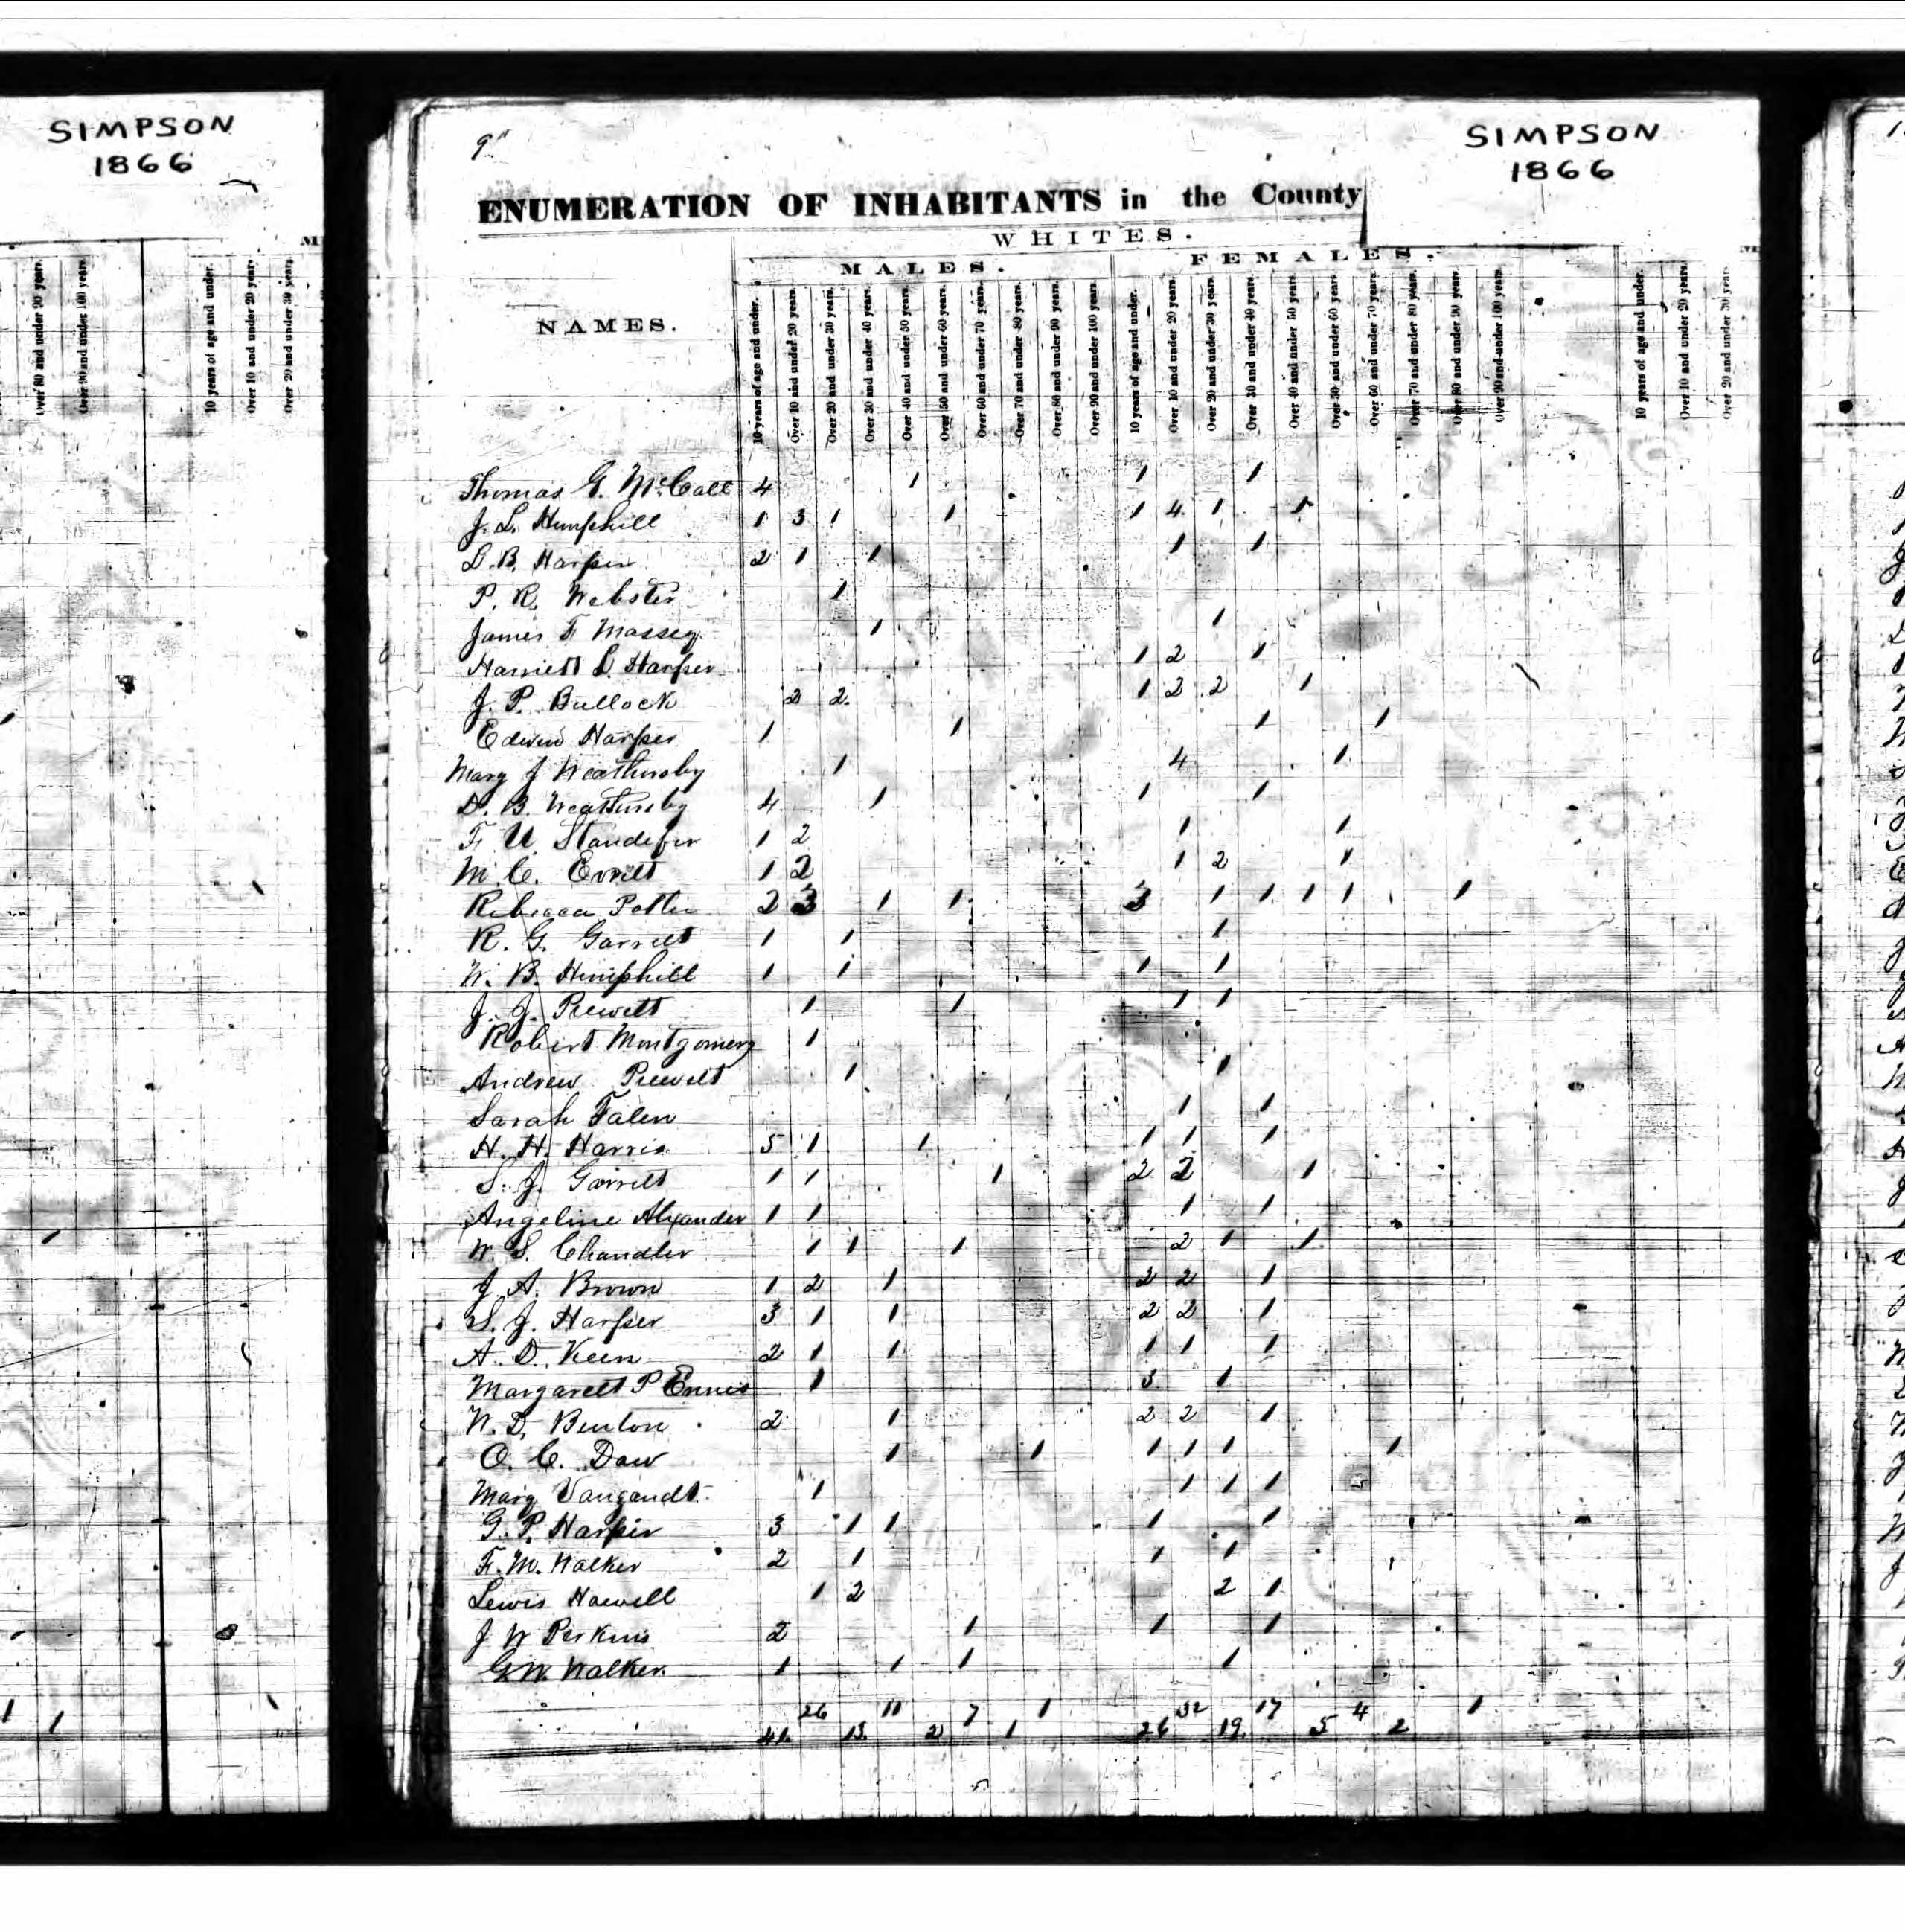 SIMPSON
1866
Over 80 and under 90 years.
Over 90 and under 100 years.
10 years of age and under.
Over 10 and under 20 years
Over 20 and under 30 years
9"
SIMPSON
1866
ENUMERATION OF INHABITANTS in the County
WHITES.
MALES. FEMALES.
NAMES.
10 years of age and under.
Over 10 and under 20 years.
Over 20 and under 30 years.
Over 30 and under 40 years.
Over 40 and under 50 years.
Over 50 and under 60 years.
Over 60 and under 70 years.
Over 70 and under 80 years.
Over 80 and under 90 years.
Over 90 and under 100 years
10 years of age and under.
Over 10 and under 20 years.
Over 20 and under 30 years.
Over 30 and under 40 years.
Over 40 and under 50 years
Over 50 and under 60 years.
Over 60 and under 70 years.
Over 70 and under 80 years.
Over 80 and under 90 years.
Over 90 and under 100 years
10 years of age and under.
Over 10 and under 20 years.
Over 20 and under 30 years.
Thomas G. McCall 4 1 1 1
J. L. Hemphill 1 3 1 1 1 4 1 1
L. B. Harper 2 1 1 1 1
P. R. Webster 1
James F. Massey 1 1
Harriett L. Harper 1 2 1
J. P. Bullock 2 2 1 2 2 1
Edwin Harper 1 1 1 1
Mary J Weathersby 1 4 1
D. B. Weathersby 4 1 1 1
F. U. Standefer 1 2 1 1
M C. Everett 1 2 1 2 1
Rebecca Potter 2 3 1 1 3 1 1 1 1 1
R. G. Garrett 1 1 1
W. B. Hemphill 1 1 1 1
J. J. Prewett 1 1 1 1
Robert Montgomery 1
Andrew Prewett 1 1
Sarah Falen 1 1
H. H. Harris 5 1 1 1 1 1
S. J. Garrett 1 1 1 2 2 1
Angeline Alexander 1 1 1 1
W. S. Chandler 1 1 1 2 1 1
J. A. Brown 1 2 1 2 2 1
S. J. Harper 3 1 1 2 2 1
A. D. Keen 2 1 1 1 1 1
Margarett P Ennis 1 3 1
W. D. Benton 2 1 2 2 1
O. C. Dow 1 1 1 1 1 1
Mary Vanzandt 1 1 1 1
G. P. Harper 3 1 1 1 1
F. M. Walker 2 1 1 1
Lewis Howell 1 2 2 1
J W Perkins 2 1 1 1
G W. Walker 1 1 1 1
26 11 7 1 32 17 4 1
41 13 2 1 26 19 5 2